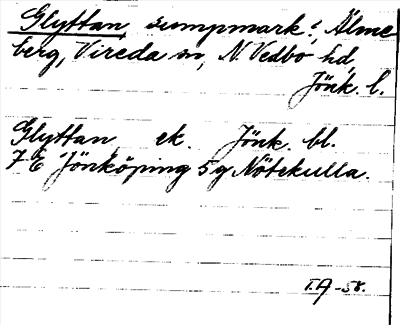 Glyttan sumpmark: Älme
berg, Vireda sn, N. Vedbo hd
Jönk. l.
Glyttan ek. Jönk. bl.
7 E Jönköping 5 g Nötekulla.
I.A -58.